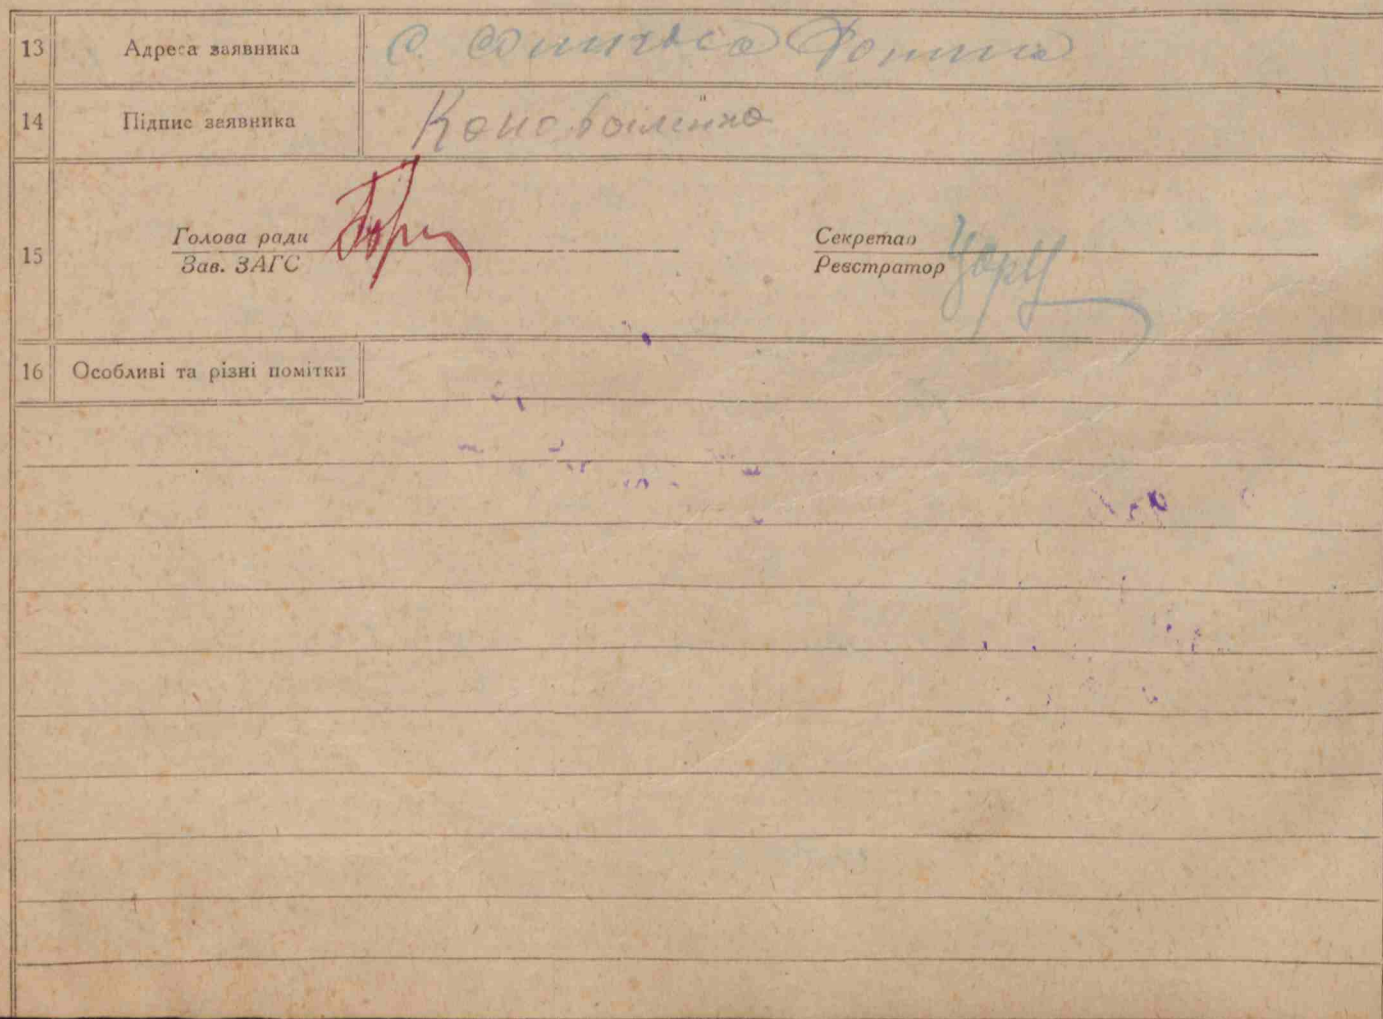 13 Адреса заявника С.
14 Підпис заявника Коноваленко
15 Голова ради
Зав. ЗАГС
Секретар
Реєстратор
16 Особливі та різні помітки